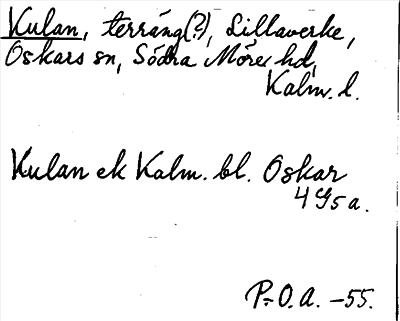 Kulan, terräng(?), Lillaverke,
Oskars sn, Södra Möre hd,
Kalm. l.
Kulan ek Kalm. bl. Oskar
4 G 5 a.
P.O.A. -55.